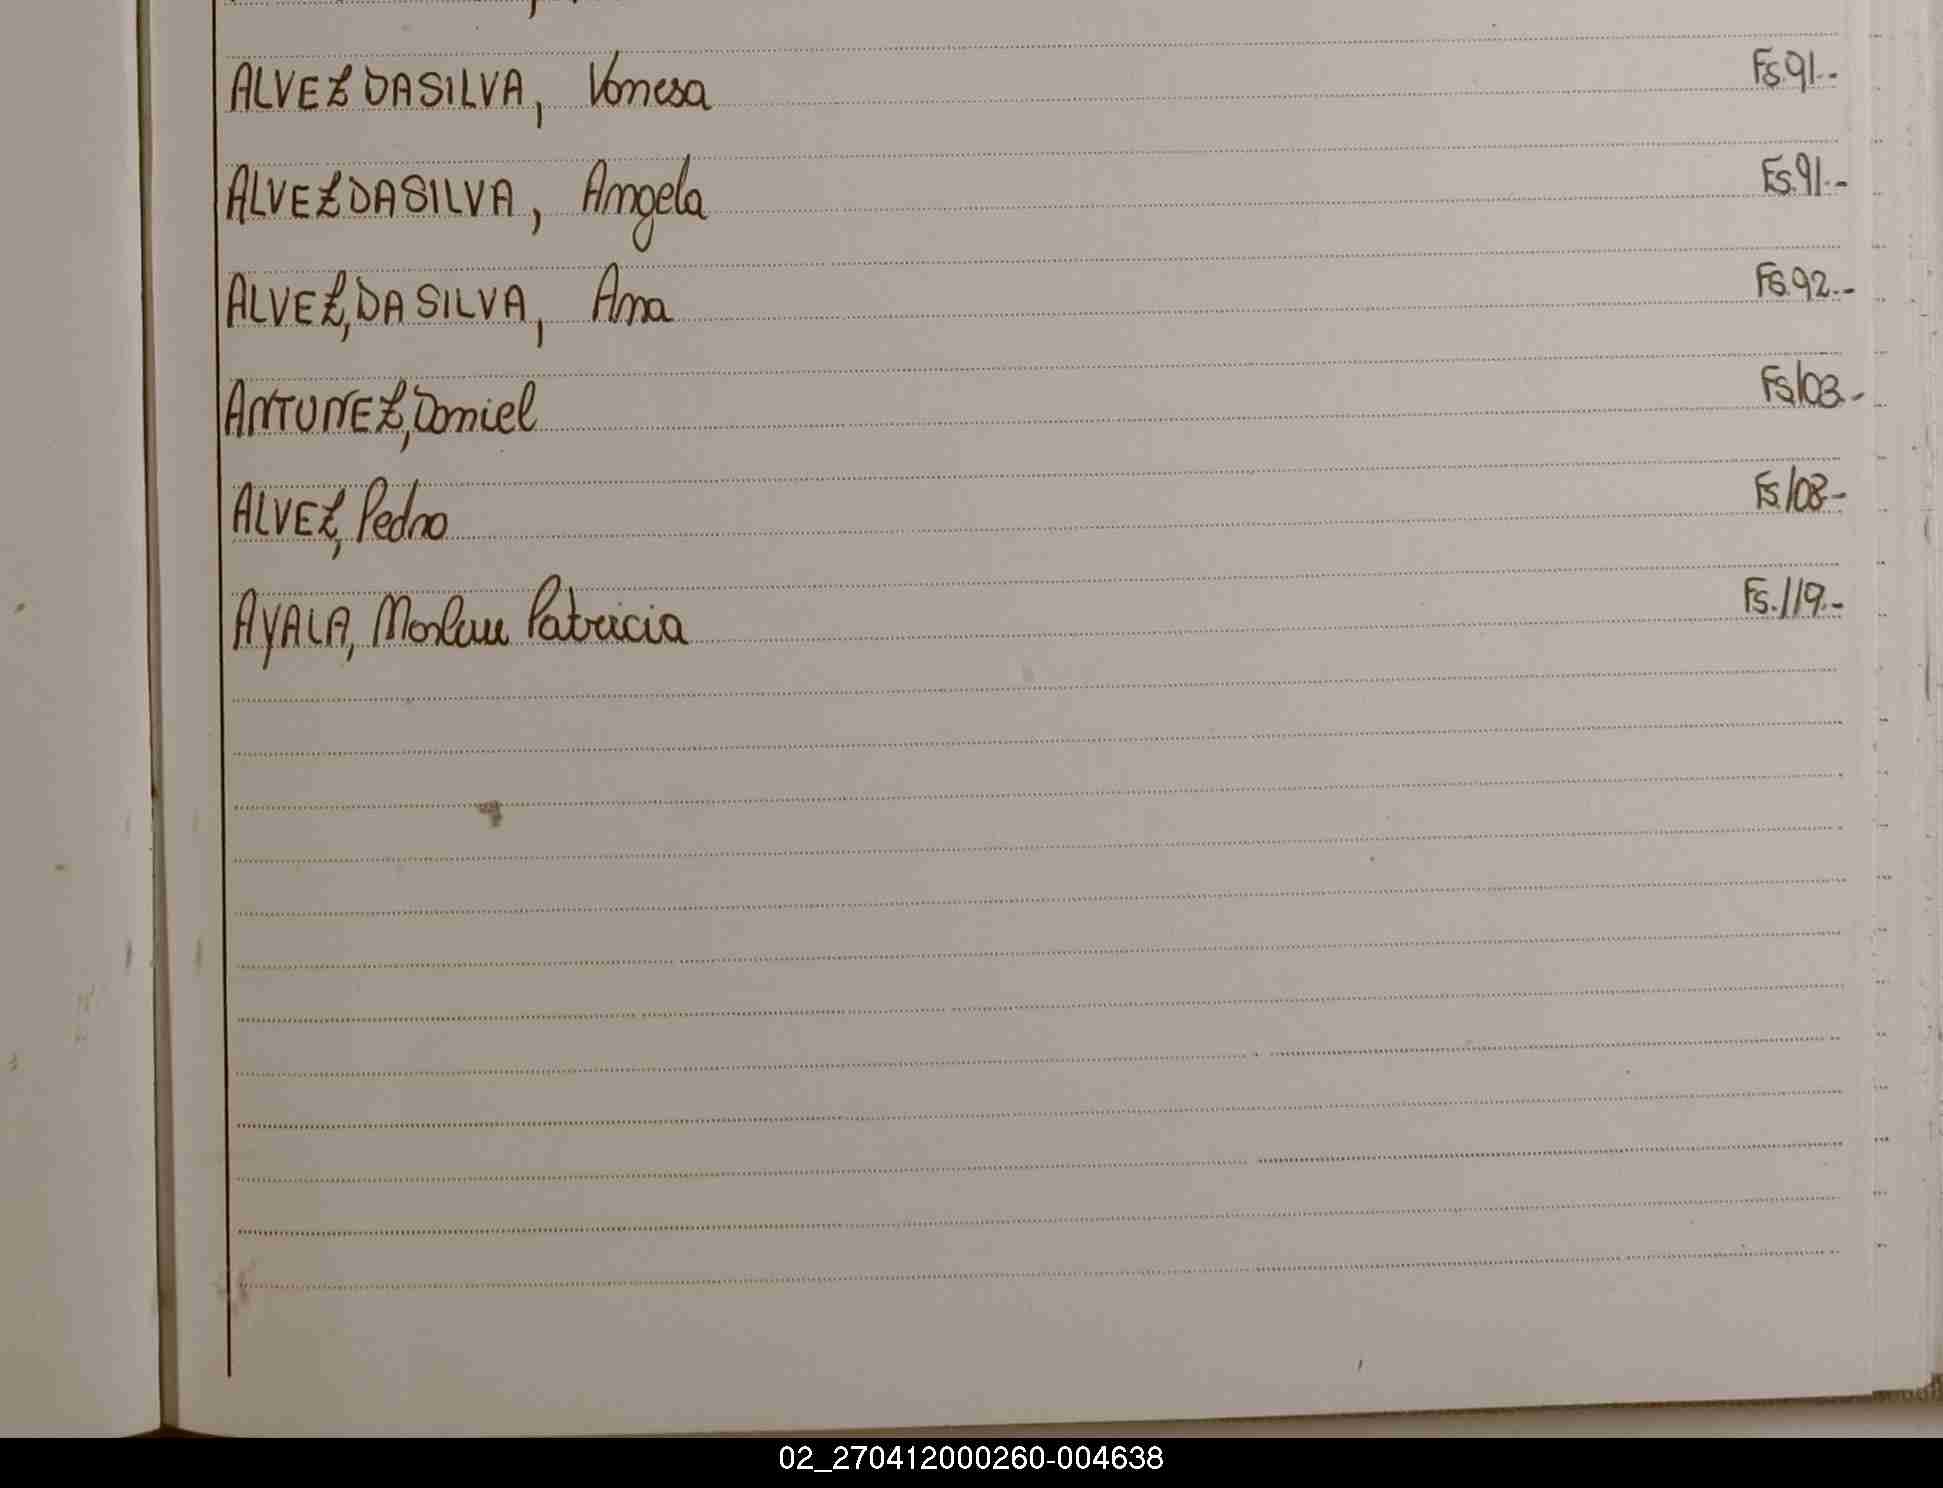 ALVEZ DASILVA, Vanesa Fs.91.-
ALVEZ DASILVA, Angela Fs.91.-
ALVEZ, DA SILVA, Ana Fs.92.-
ANTUNEZ, Daniel Fs.103.-
ALVEZ, Pedro Fs.108-
AYALA, Patricia Fs.119.-
02_270412000260-004638